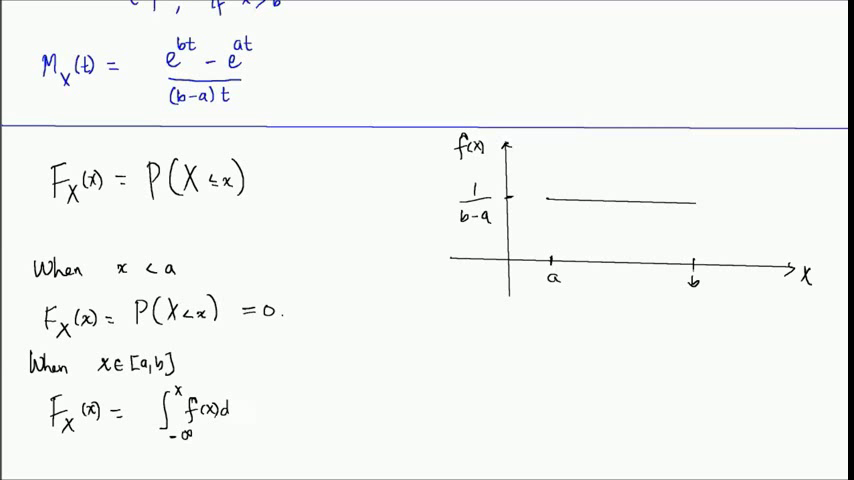 1, if x > b
M_X(t) = (e^{bt} - e^{at}) / ((b-a)t)
F_X(x) = P(X ≤ x)
When x < a
F_X(x) = P(X < x) = 0.
When x ∈ [a,b]
F_X(x) = ∫_{-∞}^{x} f(x)d
f(x)
1/(b-a)
a
b
X